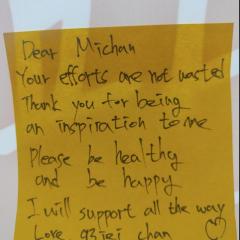 Dear Michan
Your efforts are not wasted
Thank you for being
an inspiration to me
Please be healthy
and be happy
I will support all the way
Love chan